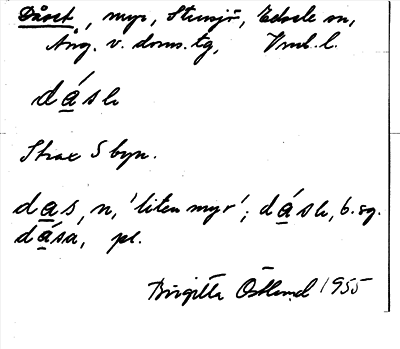 Dåset, myr, Stensjö, Edsele sn,
Ång. v. doms.tg, Vml. l.
dásh
Strax S byn.
das, n, 'liten myr'; dásh, b. sg.
dása, pl.
Birgitta Östlund 1955